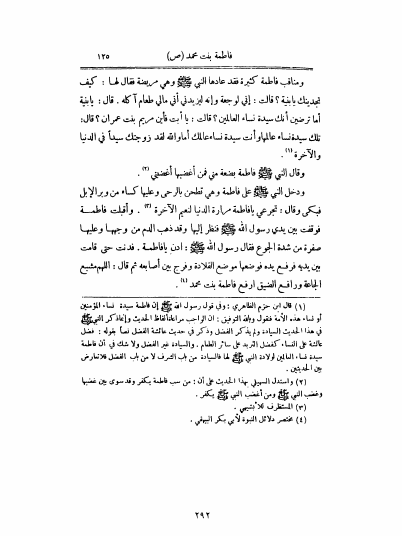 فاطمة بنت محمد (ص) ١٢٥
ومناقب فاطمة كثيرة فقد عادها النبي ﷺ وهي مريضة فقال لها : كيف
تجدينك يابنية ؟ قالت : إني لوجعة وإنه ليزيدني أني مالي طعام آكله . قال : يابنية
أما ترضين أنك سيدة نساء العالمين ؟ قالت : يا أبت فأين مريم بنت عمران ؟ قال :
تلك سيدة نساء عالمها وأنت سيدة نساء عالمك أما والله لقد زوجتك سيداً في الدنيا
والآخرة (١) .
وقال النبي ﷺ فاطمة بضعة مني فمن أغضبها أغضبني (٢) .
ودخل النبي ﷺ على فاطمة وهي تطحن بالرحى وعليها كساء من وبر الإبل
فبكى وقال : تجرعي يافاطمة مرارة الدنيا لنعيم الآخرة (٣) . وأقبلت فاطمة
فوقفت بين يدي رسول الله ﷺ فنظر إليها وقد ذهب الدم من وجهها وعليها
صفرة من شدة الجوع فقال رسول الله ﷺ : ادن يافاطمة . فدنت حتى قامت
بين يديه فرفع يده فوضعها موضع القلادة وفرج بين أصابعه ثم قال : اللهم مشبع
الجاعة ورافع الضيق ارفع فاطمة بنت محمد (٤) .
(١) قال ابن حزم الظاهري : وفي قول رسول الله ﷺ إن فاطمة سيدة نساء المؤمنين
أو نساء هذه الأمة فنقول وبالله التوفيق : ان الواجب مراعاة ألفاظ الحديث وإنما ذكر النبي ﷺ
في هذا الحديث السيادة ولم يذكر الفضل وذكر في حديث عائشة الفضل نصاً بقوله : فضل
عائشة على النساء كفضل الثريد على سائر الطعام . والسيادة غير الفضل ولا شك في أن فاطمة
سيدة نساء العالمين لولادة النبي ﷺ لها فالسيادة من باب الشرف لا من باب الفضل فلا تعارض
بين الحديثين .
(٢) واستدل السهيلي بهذا الحديث على أن : من سب فاطمة يكفر وقد سوى بين غضبها
وغضب النبي ﷺ ومن أغضب النبي ﷺ يكفر .
(٣) المستظرف للأبشيهي .
(٤) مختصر دلائل النبوة لأبي بكر البيهقي .
٢٩٢